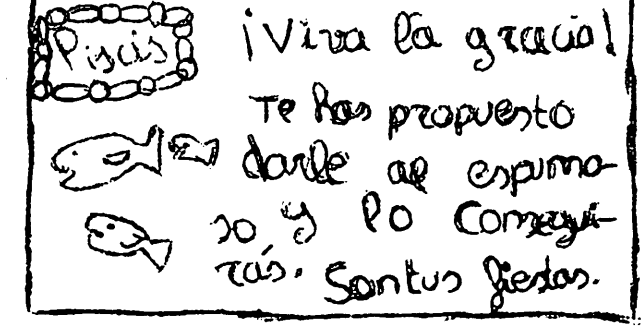 Piscis
¡Viva la gracia!
Te has propuesto
darle al espumo-
so y lo consegui-
rás. Son tus fiestas.